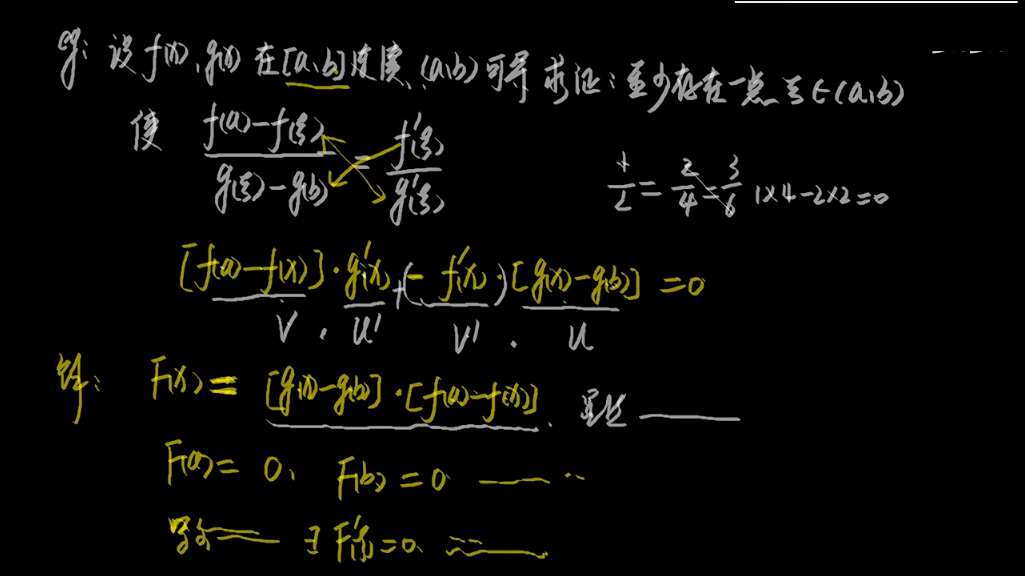 例: 设 f(x)、g(x) 在[a、b]连续、(a、b)可导 求证: 至少存在一点 ξ∈(a、b)
使 \frac{f(a)-f(ξ)}{g(ξ)-g(b)} = \frac{f'(ξ)}{g'(ξ)}
\frac{1}{2} = \frac{2}{4} = \frac{3}{6} 1×4-2×2=0
[f(a)-f(x)]·g'(x)+(-f'(x))[g(x)-g(b)]=0
V · U' V' · U
解: F(x)= [g(x)-g(b)]·[f(a)-f(x)]、
F(a)=0、 F(b)=0 ——— ··
∃ F'(ξ)=0、